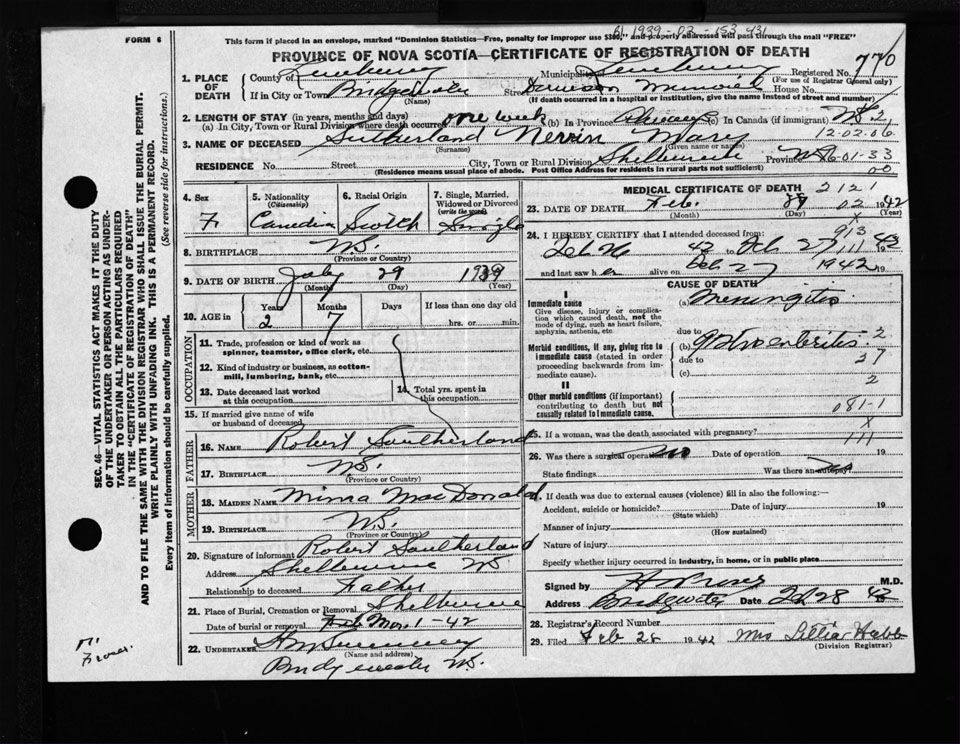 FORM 6
This form if placed in an envelope, marked "Dominion Statistics—Free, penalty for improper use $300," and properly addressed will pass through the mail "FREE"
1939-02-153431
PROVINCE OF NOVA SCOTIA—CERTIFICATE OF REGISTRATION OF DEATH
Registered No. 770
(For use of Registrar General only)
1. PLACE OF DEATH
County of Lunenburg Municipality Lunenburg
If in City or Town Bridgewater Street Dawson Memorial House No.
(Name) (If death occurred in a hospital or institution, give the name instead of street and number)
2. LENGTH OF STAY (in years, months and days)
(a) In City, Town or Rural Division where death occurred one week (b) In Province Always (c) In Canada (if immigrant)
12-02-06
3. NAME OF DECEASED Sutherland Mary
(Surname) (Given name or names)
RESIDENCE No. Street City, Town or Rural Division Shelburne Province N.S.
16-01-33
00
(Residence means usual place of abode. Post Office Address for residents in rural parts not sufficient)
4. Sex F
5. Nationality (Citizenship) Canadian
6. Racial Origin Scotch
7. Single, Married, Widowed or Divorced (write the word) Single
8. BIRTHPLACE N.S.
(Province or Country)
9. DATE OF BIRTH July 29 1939
(Month) (Day) (Year)
10. AGE in Years 2 Months 7 Days If less than one day old
hrs. or min.
OCCUPATION
11. Trade, profession or kind of work as spinner, teamster, office clerk, etc.
12. Kind of industry or business, as cotton-mill, lumbering, bank, etc.
13. Date deceased last worked at this occupation
14. Total yrs. spent in this occupation
15. If married give name of wife or husband of deceased
FATHER
16. NAME Robert Southerland
17. BIRTHPLACE N.S.
(Province or Country)
MOTHER
18. MAIDEN NAME Minna MacDonald
19. BIRTHPLACE N.S.
(Province or Country)
20. Signature of informant Robert Southerland
Address Shelburne N.S.
Relationship to deceased Father
21. Place of Burial, Cremation or Removal Shelburne
Date of burial or removal Mar. 1-42
22. UNDERTAKER
(Name and address)
Bridgewater N.S.
MEDICAL CERTIFICATE OF DEATH
2121
23. DATE OF DEATH Feb. 1942
(Month) (Day) (Year)
02
X
913
111
24. I HEREBY CERTIFY that I attended deceased from:
Feb 42 to Feb 27 1942
and last saw her alive on Feb 27 1942 19
CAUSE OF DEATH
I
Immediate cause
Give disease, injury or complication which caused death, not the mode of dying, such as heart failure, asphyxia, asthenia, etc.
(a) Meningitis
due to
Morbid conditions, if any, giving rise to immediate cause (stated in order proceeding backwards from immediate cause).
(b)
due to
(c)
2
37
2
II
Other morbid conditions (if important) contributing to death but not causally related to immediate cause.
081-1
X
25. If a woman, was the death associated with pregnancy?
111
26. Was there a surgical operation? no Date of operation 19
State findings Was there an autopsy? no
27. If death was due to external causes (violence) fill in also the following:—
Accident, suicide or homicide? Date of injury 19
(State which)
Manner of injury
(How sustained)
Nature of injury
Specify whether injury occurred in industry, in home, or in public place
Signed by M.D.
Address Bridgewater Date Feb 28 42
28. Registrar's Record Number
29. Filed Feb 28 1942 Mrs Lillia Hebb
(Division Registrar)
SEC. 46—VITAL STATISTICS ACT MAKES IT THE DUTY
OF THE UNDERTAKER OR PERSON ACTING AS UNDER-
TAKER TO OBTAIN ALL THE PARTICULARS REQUIRED
IN THE "CERTIFICATE OF REGISTRATION OF DEATH"
AND TO FILE THE SAME WITH THE DIVISION REGISTRAR WHO SHALL ISSUE THE BURIAL PERMIT.
WRITE PLAINLY WITH UNFADING INK. THIS IS A PERMANENT RECORD.
Every item of information should be carefully supplied. (See reverse side for instructions).